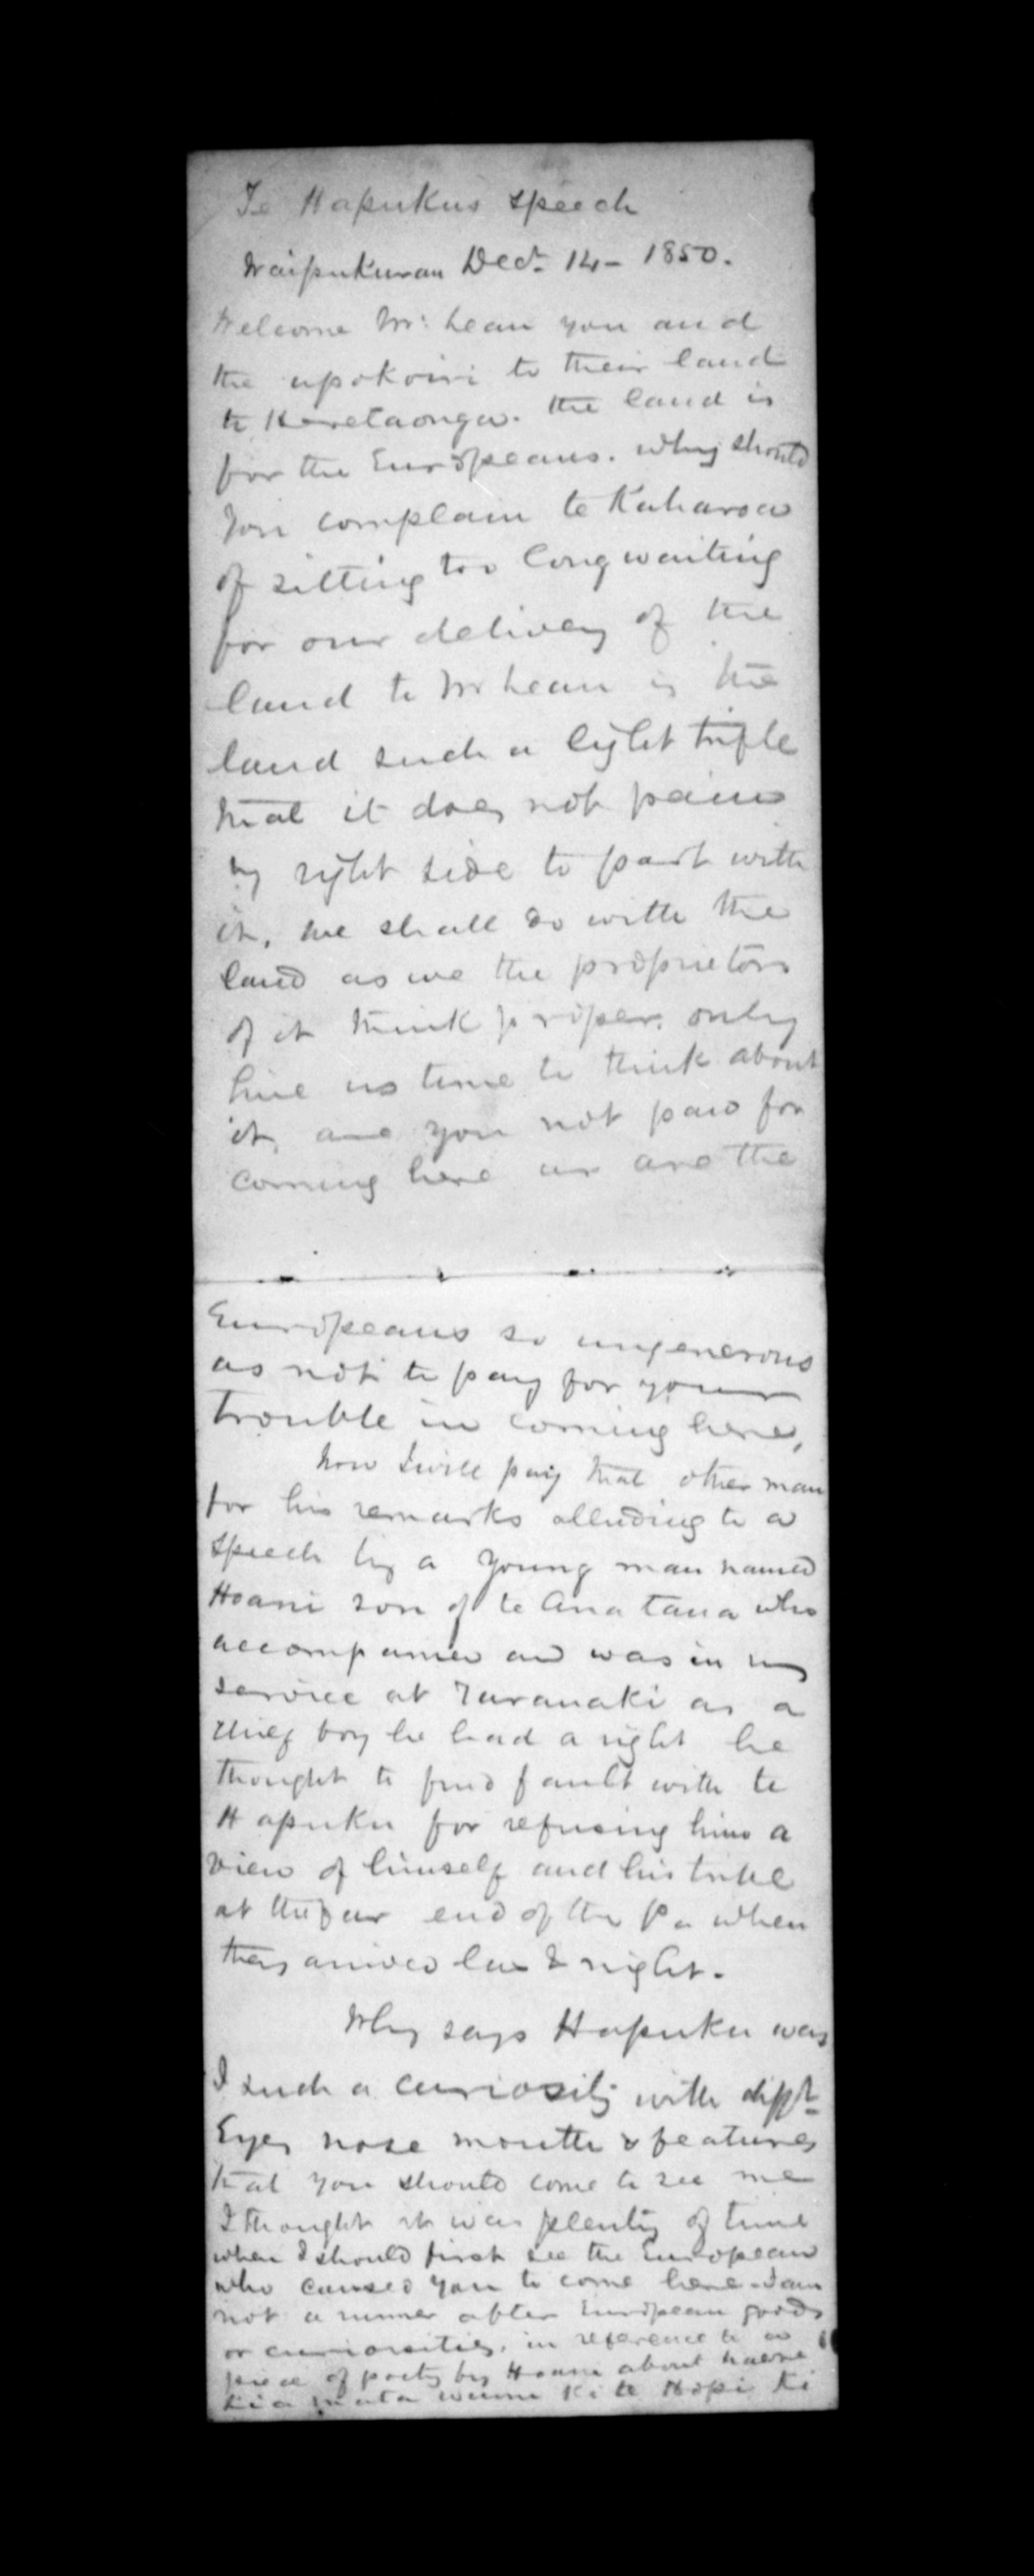 Te Hapukus speech
Waipukurau Decr. 14 - 1850.
Welcome Mr: Lean you and
the upokoiri to their land
to Heretaonga. the land is
for the Europeans. why should
you complain te Kaharoa
of sitting too long waiting
for our delivery of the
land to Mr Lean is the
land such a light trifle
that it does not pain
my right side to part with
it, we shall do with the
land as we the proprietors
of it think proper. only
give us time to think about
it, are you not paid for
coming here or are the
Europeans so ungenerous
as not to pay for your
trouble in coming here,
Now I will pay that other man
for his remarks alluding to a
speech by a young man named
Hoani son of te Ana tana who
accompanied and was in my
service at Taranaki as a
chief boy he had a right he
thought to find fault with te
Hapuku for refusing him a
view of himself and his tribe
at the far end of the Pa when
they arrived night.
Why says Hapuku was
I such a curiosity with difft
Eyes nose mouth & features
that you should come to see me
I thought it was plenty of time
when I should first see the European
who caused you to come here - I am
not a runner after European goods
or curiosities. in reference to a
piece of poetry by Hoani about haere
kia mata ki te Hopi ki